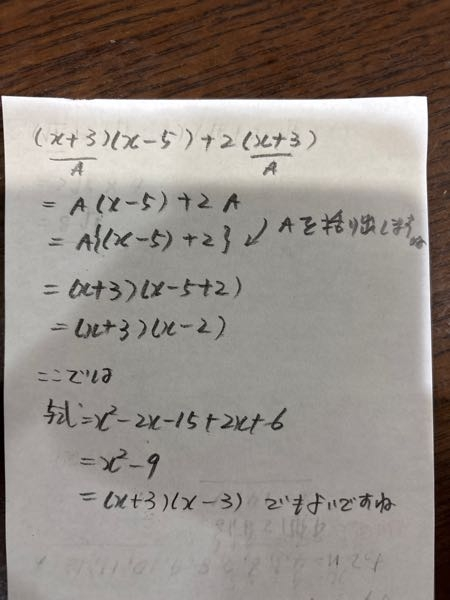 (x+3)(x-5)+2(x+3)
A A
= A(x-5)+2A
= A{(x-5)+2} Aを括り出しますね
= (x+3)(x-5+2)
= (x+3)(x-2)
ここでは
与式=x²-2x-15+2x+6
= x²-9
= (x+3)(x-3) でもよいですね